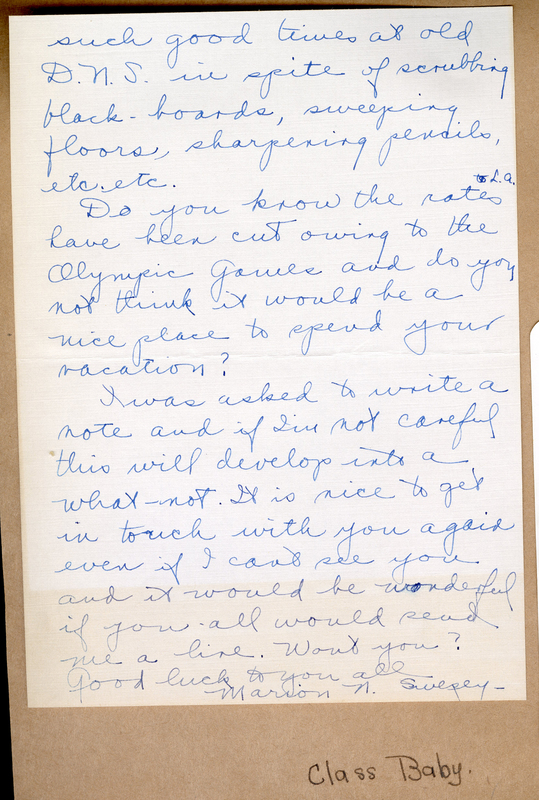 such good times at old
D.N.S. in spite of scrubbing
black-boards, sweeping
floors, sharpening pencils,
etc. etc.
Do you know the rates to L.A.
have been cut owing to the
Olympic Games and do you
not think it would be a
nice place to spend your
vacation?
I was asked to write a
note and if I'm not careful
this will develop into a
what-not. It is nice to get
in touch with you again
even if I can't see you
and it would be wonderful
if you-all would send
me a line. Won't you?
Good luck to you all
Marion N. Swezey-
Class Baby.